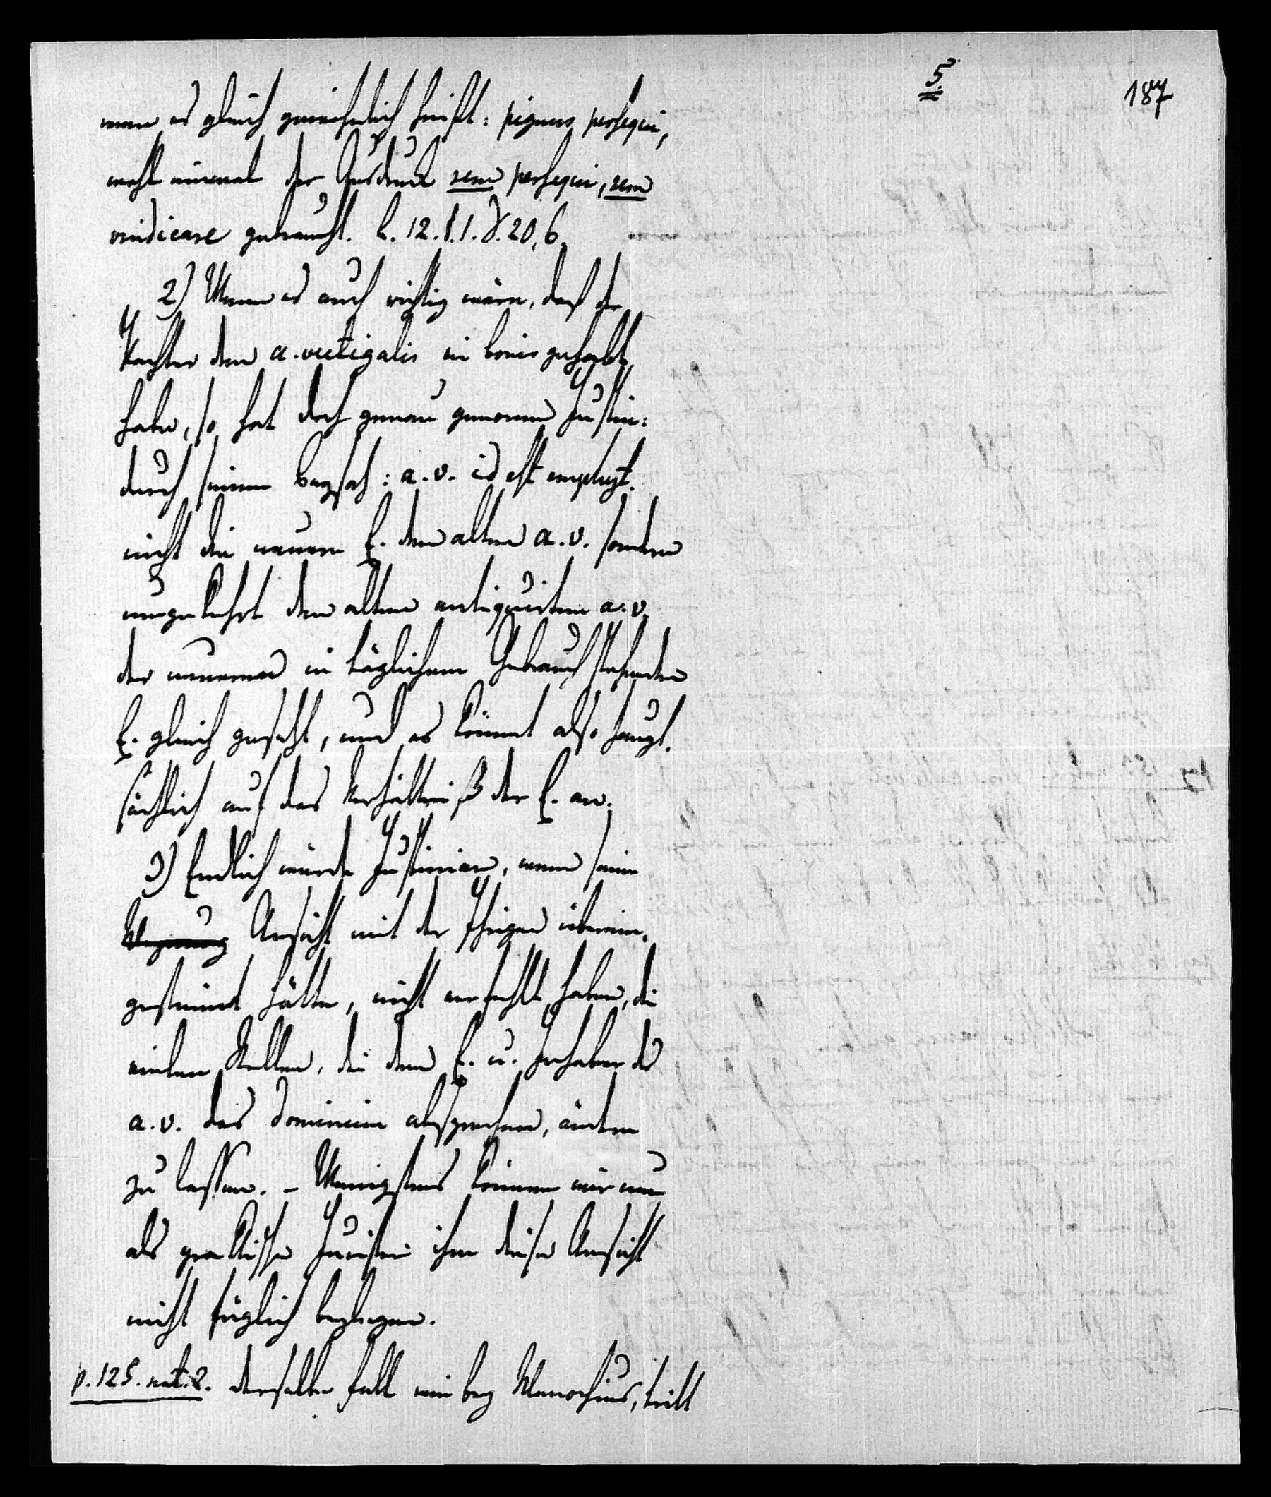 5
187
wenn es gleich gewöhnlich heißt: pignus persequi,
wohl niemal der Ausdruck rem persequi, rem
vindicare gebraucht. L. 12. §. 1. D. 20, 6.
2) Wenn es auch richtig wäre, daß der
Pachter den a. vectigalis in bonis gehabt
habe, so hat doch genau genommen Justin:
durch seinen Beysatz: a. v. id est emphyt.
nicht die neuere E. dem alten a. v. sondern
umgekehrt den alten antiquirten a. v.
der neueren in täglichem Gebrauch stehenden
E. gleich gesetzt, und es kömmt also haupt-
sächlich auf das Verhältniß der E. an.
3) Endlich würde Justinian, wenn seine
Meynung Ansicht mit der Ihrigen überein-
gestimmt hätte, nicht verfehlt haben, die
vielen Stellen, die dem E. u. Inhaber des
a. v. das dominium absprechen, ändern
zu lassen. – Wenigstens können wir nun
als praktische Juristen ihm diese Ansicht
nicht füglich beylegen.
p. 125. not. 2. derselbe Fall wie bey Menochius, tritt